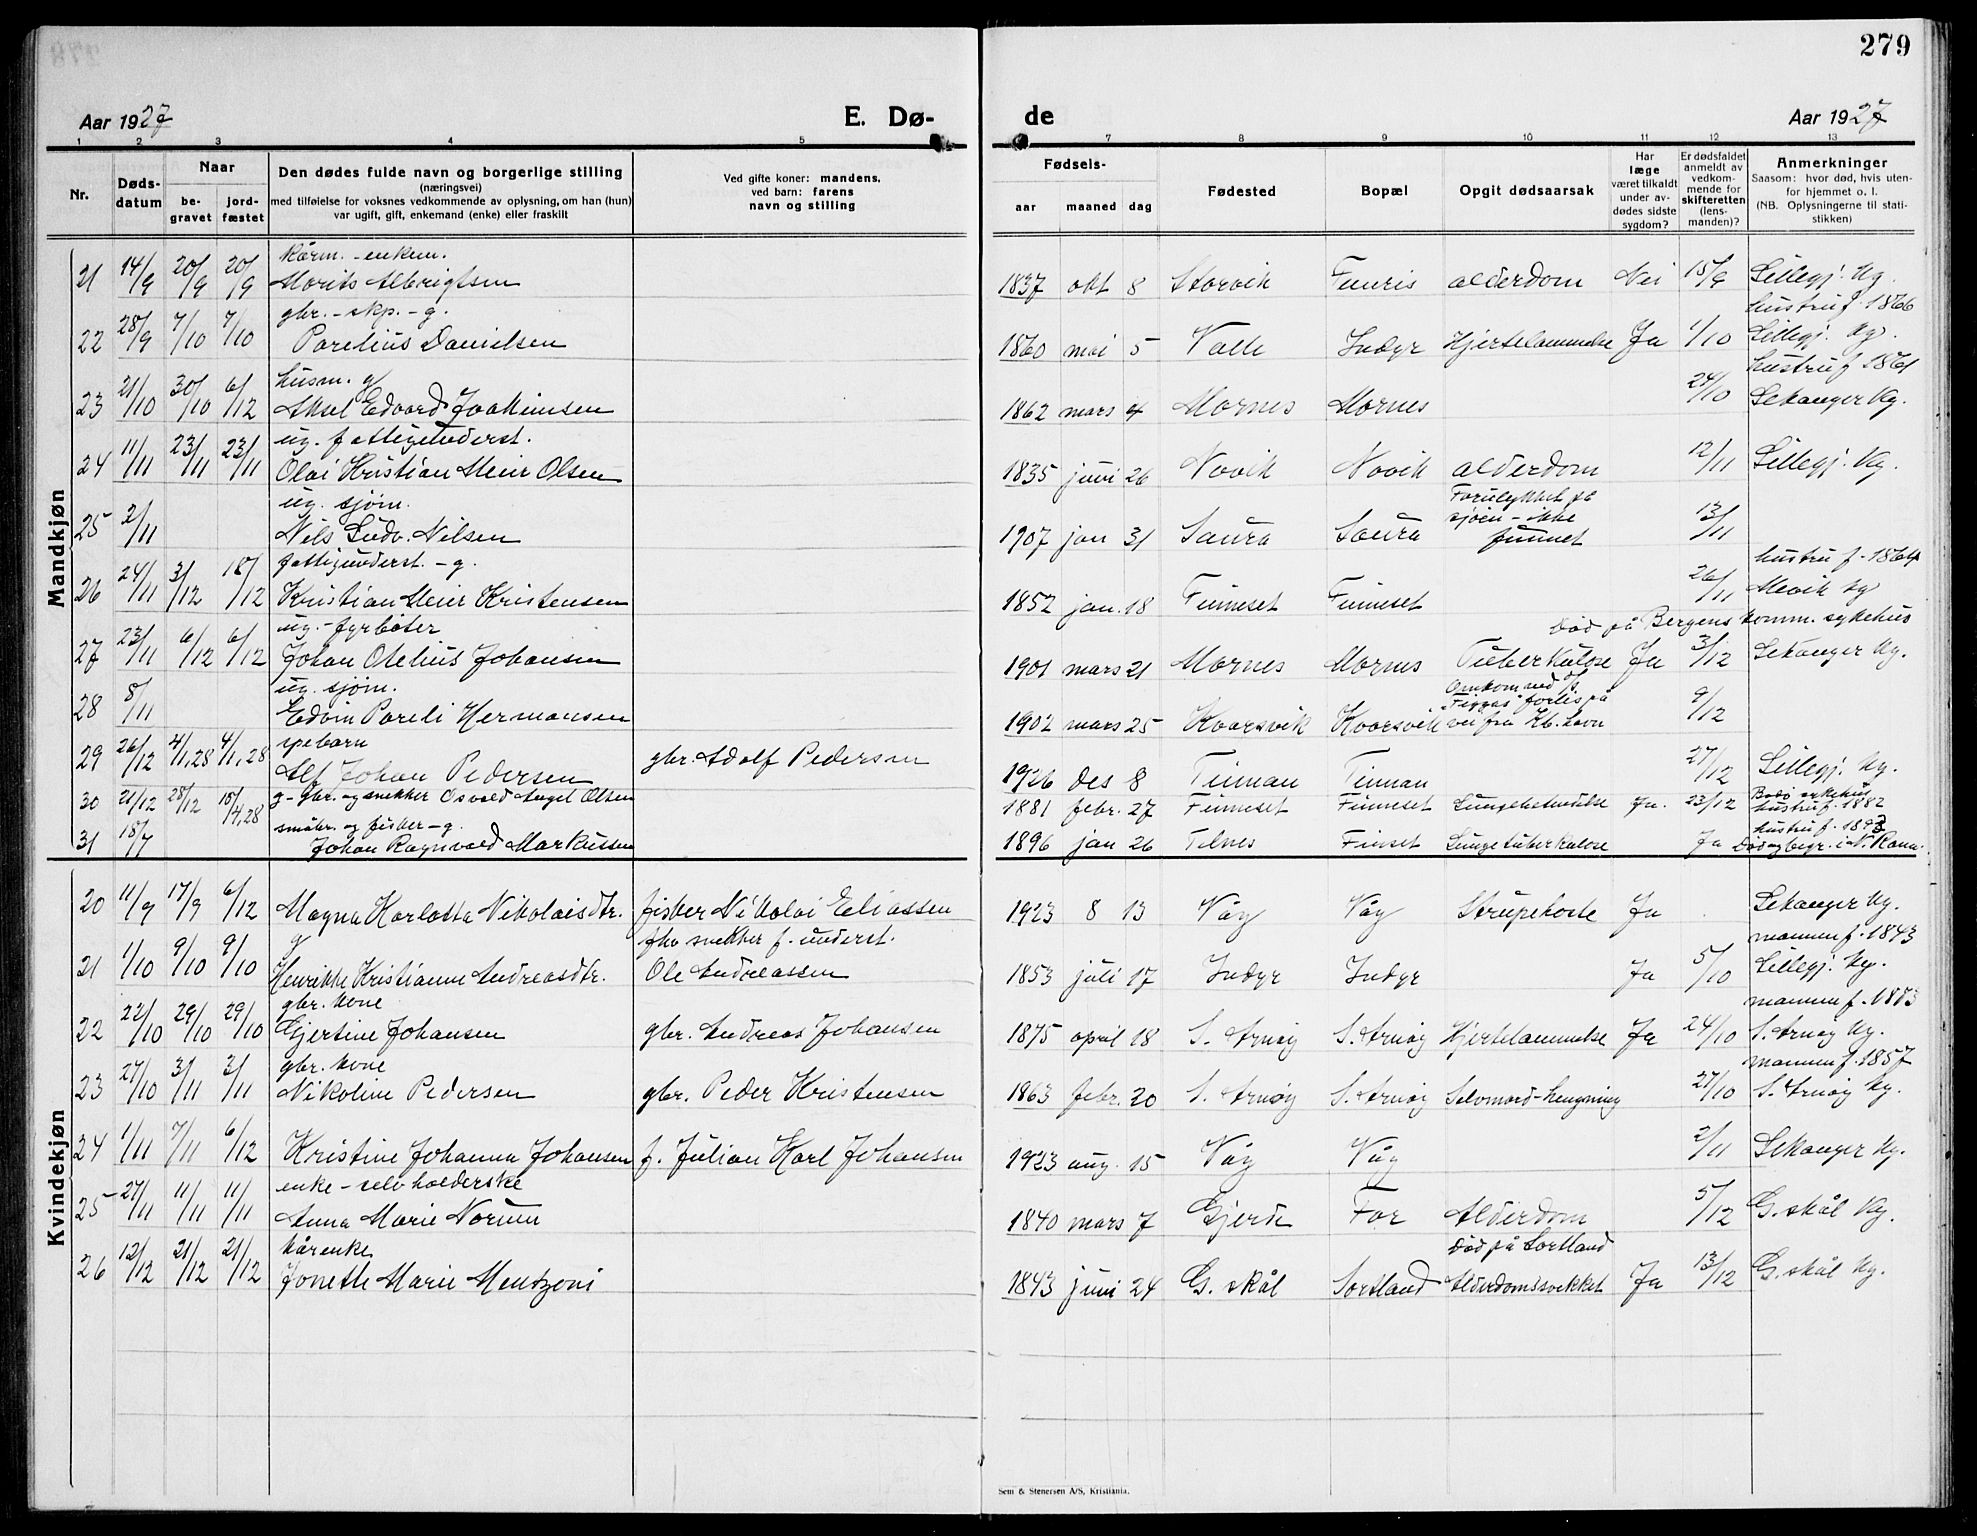 279
Aar 1927
E. Dø-
de
Aar 1927
1 2 3 4 5 7 8 9 10 11 12 13
Nr.
Døds-
datum
Naar
be-
gravet
jord-
fæstet
Den dødes fulde navn og borgerlige stilling
(næringsvei)
med tilføielse for voksnes vedkommende av oplysning, om han (hun)
var ugift, gift, enkemand (enke) eller fraskilt
Ved gifte koner: mandens,
ved barn: farens
navn og stilling
Fødsels-
aar maaned dag
Fødested
Bopæl
Opgit dødsaarsak
Har
læge
været tilkaldt
under av-
dødes sidste
sygdom?
Er dødsfaldet
anmeldt av
vedkom-
mende for
skifteretten
(lens-
manden)?
Anmerkninger
Saasom: hvor død, hvis uten-
for hjemmet o. l.
(NB. Oplysningerne til stati-
stikken)
Mandkjøn
kårm. - enkem.
21 14/9 20/9 20/9 Morits Albrigtsen 1837 okt 8 Storvik Funris alderdom Nei 15/9 Lillegj. kg.
gbr. - skp. - g. hustru f. 1866
22 28/9 7/10 7/10 Parelius Danielsen 1860 mai 5 Valle Indyr Hjertelammelse Ja 1/10 Lillegj. kg.
husm. g hustru f 1861
23 21/10 30/10 6/12 Aksel Edvard Joakimsen 1862 mars 4 Mornes Mornes 24/10 Sekanger kg.
ug. fattigunderst.
24 11/11 23/11 23/11 Olai Kristian Meier Olsen 1835 juni 26 Novik Novik alderdom 12/11 Lillegj. kg.
ug. sjøm. Forulykket på
25 2/11 Nils Ludv. Nilsen 1907 jan 31 Saura Saura sjøen - ikke 13/11
funnet
fattigunderst. - g. hustru f. 1864
26 24/11 3/12 18/12 Kristian Meier Kristensen 1852 jan. 18 Finneset Finneset 26/11 Mevik kg
ug. - fyrbøter Død på Bergens komm. sykehus
27 23/11 6/12 6/12 Johan Otelius Johansen 1901 mars 21 Mornes Mornes Tuberkulose Ja 3/12 Sekanger kg.
ug. sjøm. Omkom ved
28 8/11 Edvin Pareli Hermansen 1902 mars 25 Kvarsvik Kvarsvik forlis på 9/12
vei fra Kb.havn
spebarn
29 26/12 4/1,28 4/1,28 Alf Johan Pedersen gbr. Adolf Pedersen 1926 des 8 Tinnan Tinnan 27/12 Lillegj. kg.
Bodø sykehus
30 21/12 28/12 15/4,28 g - gbr. og snekker Osvald Angel Olsen 1881 febr. 27 Finneset Finneset Lungebetendelse Ja. 23/12 hustru f. 1882
småbr. og fisker - g. hustru f. 1893
31 18/7 Johan Ragnvald Markussen 1896 jan 26 Telnes Finset Lungetuberkulose Ja Død og begr. i N. Rana.
Kvindekjøn
20 11/9 17/9 6/12 Magna Karlotta Nikolaisdtr. fisker Nikolai Eliassen 1923 8 13 Våg Våg Strupehoste Ja Sekanger kg.
g fhv snekker f. underst. mannen f. 1843
21 1/10 9/10 9/10 Henrikke Kristianne Andreasdtr. Ole Andreassen 1853 juli 17 Indyr Indyr Ja 5/10 Lillegj. kg.
gbr. kone mannen f. 1883
22 22/10 29/10 29/10 Gjertine Johansen gbr. Andreas Johansen 1875 april 18 S. Arnøy S. Arnøy Hjertelammelse Ja 24/10 S. Arnøy kg.
gbr. kone mannen f. 1857
23 27/10 3/11 3/11 Nikoline Pedersen gbr. Peder Kristensen 1863 febr. 20 S. Arnøy S. Arnøy Selvmord - hengning 27/10 S. Arnøy kg.
24 1/11 7/11 6/12 Kristine Johanna Johansen f. Julian Karl Johansen 1923 aug. 15 Våg Våg 2/11 Sekanger kg.
enke - selvholderske
25 27/11 11/11 11/11 Anna Marie Norum 1840 mars 7 Gjerde For Alderdom 5/12 G.skål kg.
kårenke Død på Sortland
26 12/12 21/12 21/12 Jonette Marie Mentzoni 1843 juni 24 G. skål Sortland Alderdomsvekket Ja 13/12 G.skål kg.
Sem & Stenersen A/S, Kristiania.